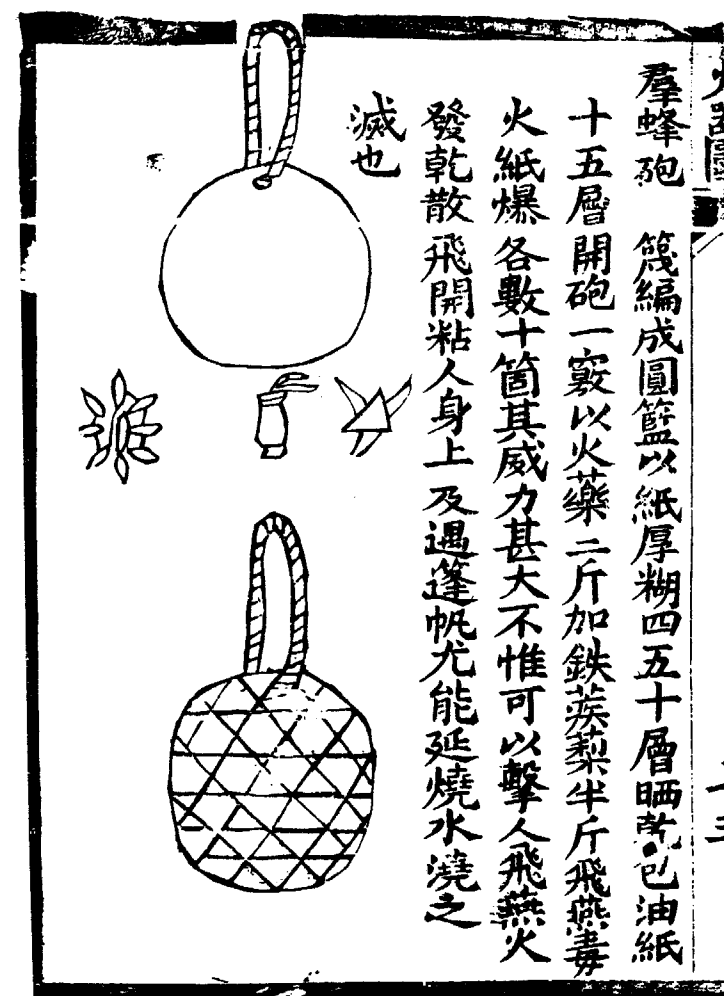 羣蜂砲　篾編成圓籃以紙厚糊四五十層晒乾包油紙
十五層開砲一竅以火藥二斤加鉄蒺蔾半斤飛燕毒
火紙爆各數十箇其威力甚大不惟可以擊人飛燕火
發乾散飛開粘人身上及遇篷帆尤能延燒水澆之
滅也